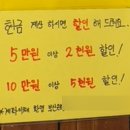 현금 계산 하시면 할인 해 드려요..
5만원 이상 2천원 할인!
10만원 이상 5천원 할인!